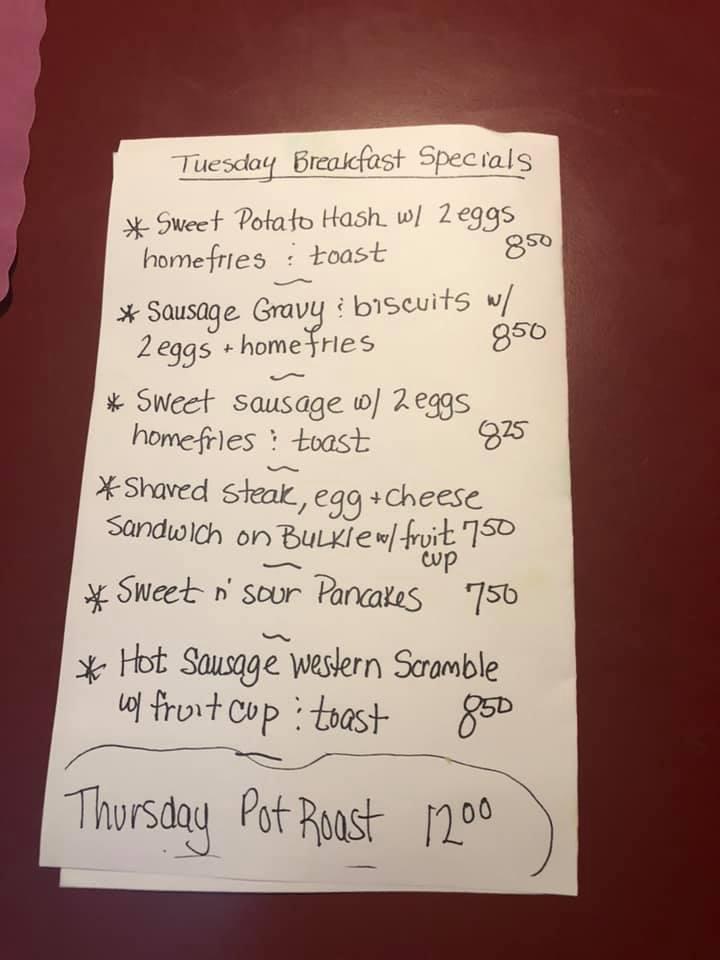 Tuesday Breakfast Specials
* Sweet Potato Hash w/ 2 eggs
homefries : toast 8 50
* Sausage Gravy : biscuits w/
2 eggs + homefries 8 50
* Sweet sausage w/ 2 eggs
homefries : toast 8 25
* Shaved steak, egg + cheese
Sandwich on BULKIE w/ fruit 7 50
cup
* Sweet n' sour Pancakes 7 50
* Hot Sausage western Scramble
w/ fruit cup : toast 8 50
Thursday Pot Roast 12 00